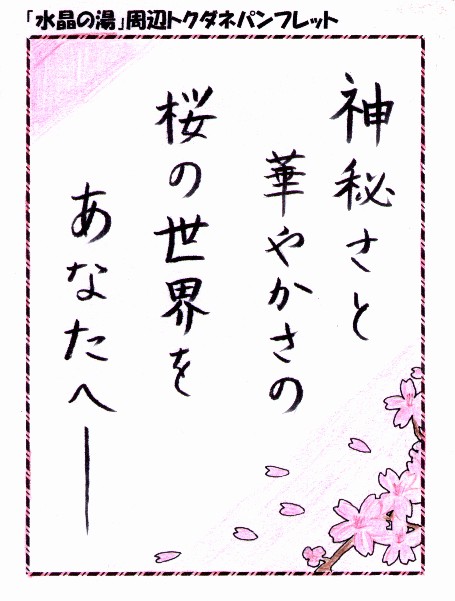 「水晶の湯」周辺トクダネパンフレット
神秘さと
華やかさの
桜の世界を
あなたへ――